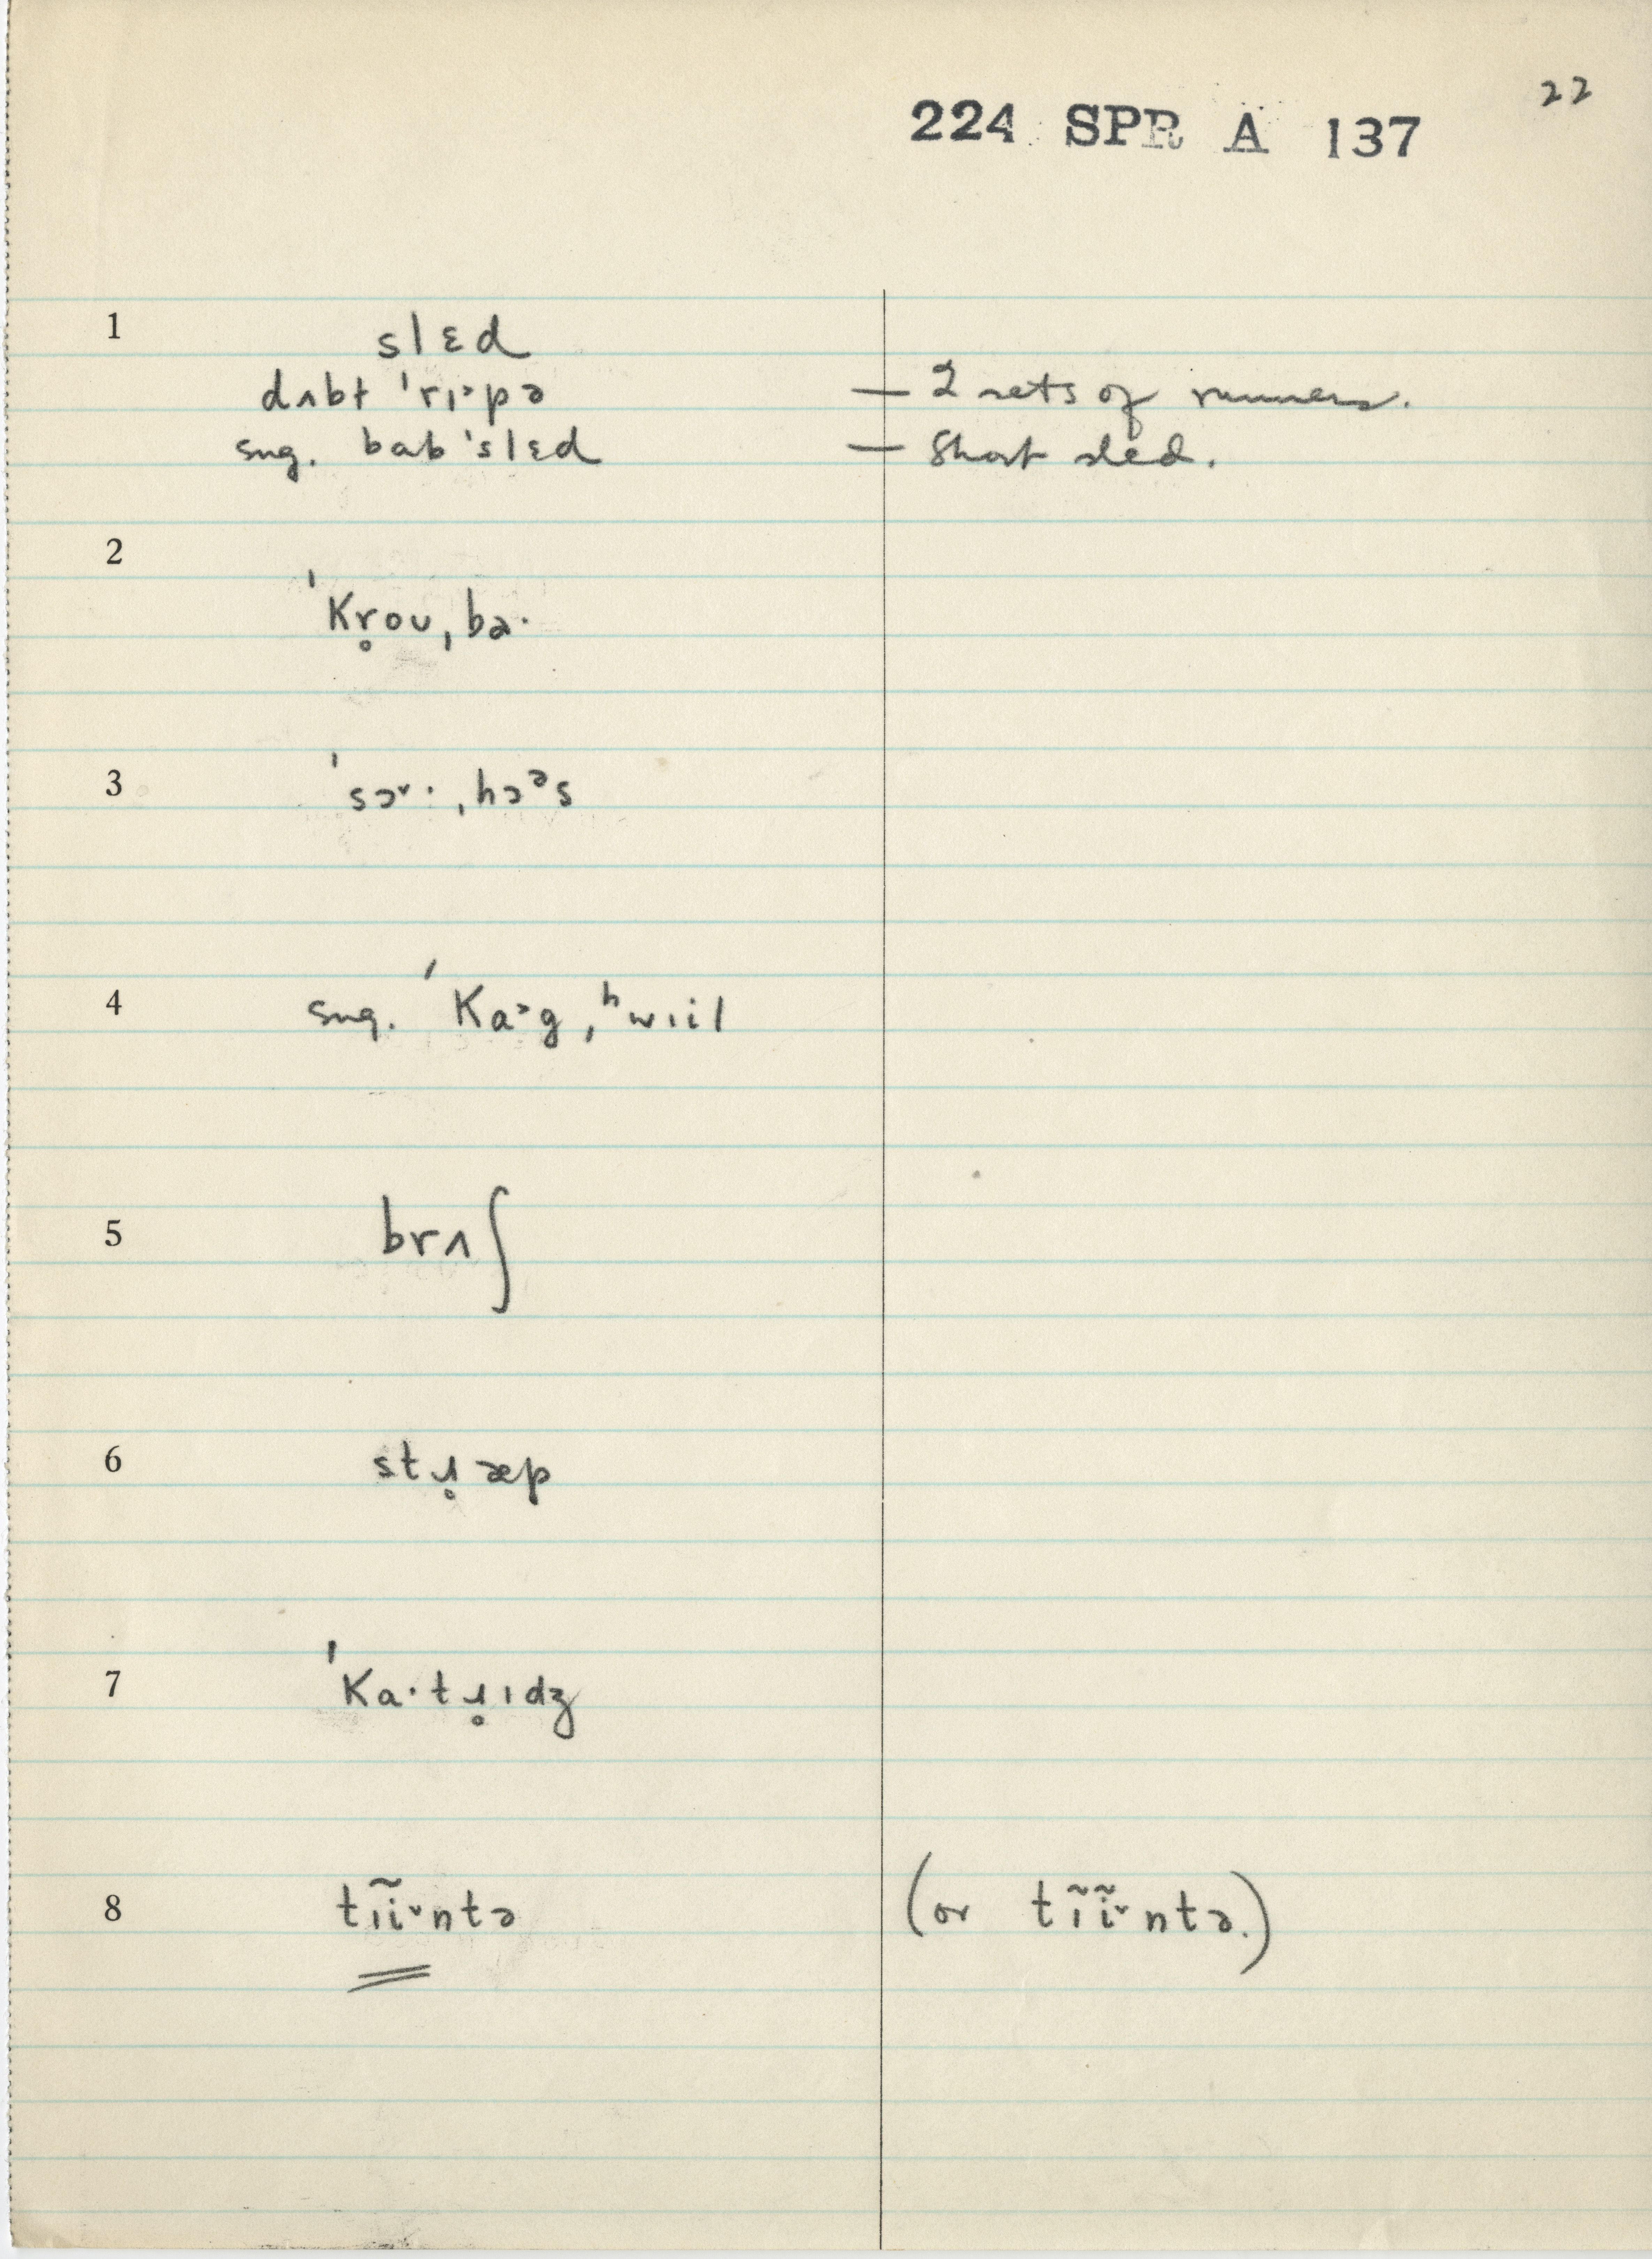 22
224 SPR A 137
1 slɛd
dʌbt ˈrɪ˃pə — 2 sets of runners.
sug. babˈslɛd — Short sled.
2 ˈKr̥oʊˌba·
3 ˈsɔ˅·ˌhɔᵊs
4 sug. ˈKa˃gˌʰwɪil
5 brʌʃ
6 stɹ̥æp
7 ˈKa·tɹ̥ɪdʒ
8 tɪĩ˅ntə (or tɪ̃ĩ˅ntə.)